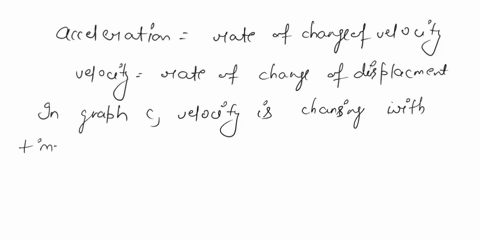 acceleration = rate of change of velocity
velocity = rate of change of displacment
In graph C, velocity is changing with
tim